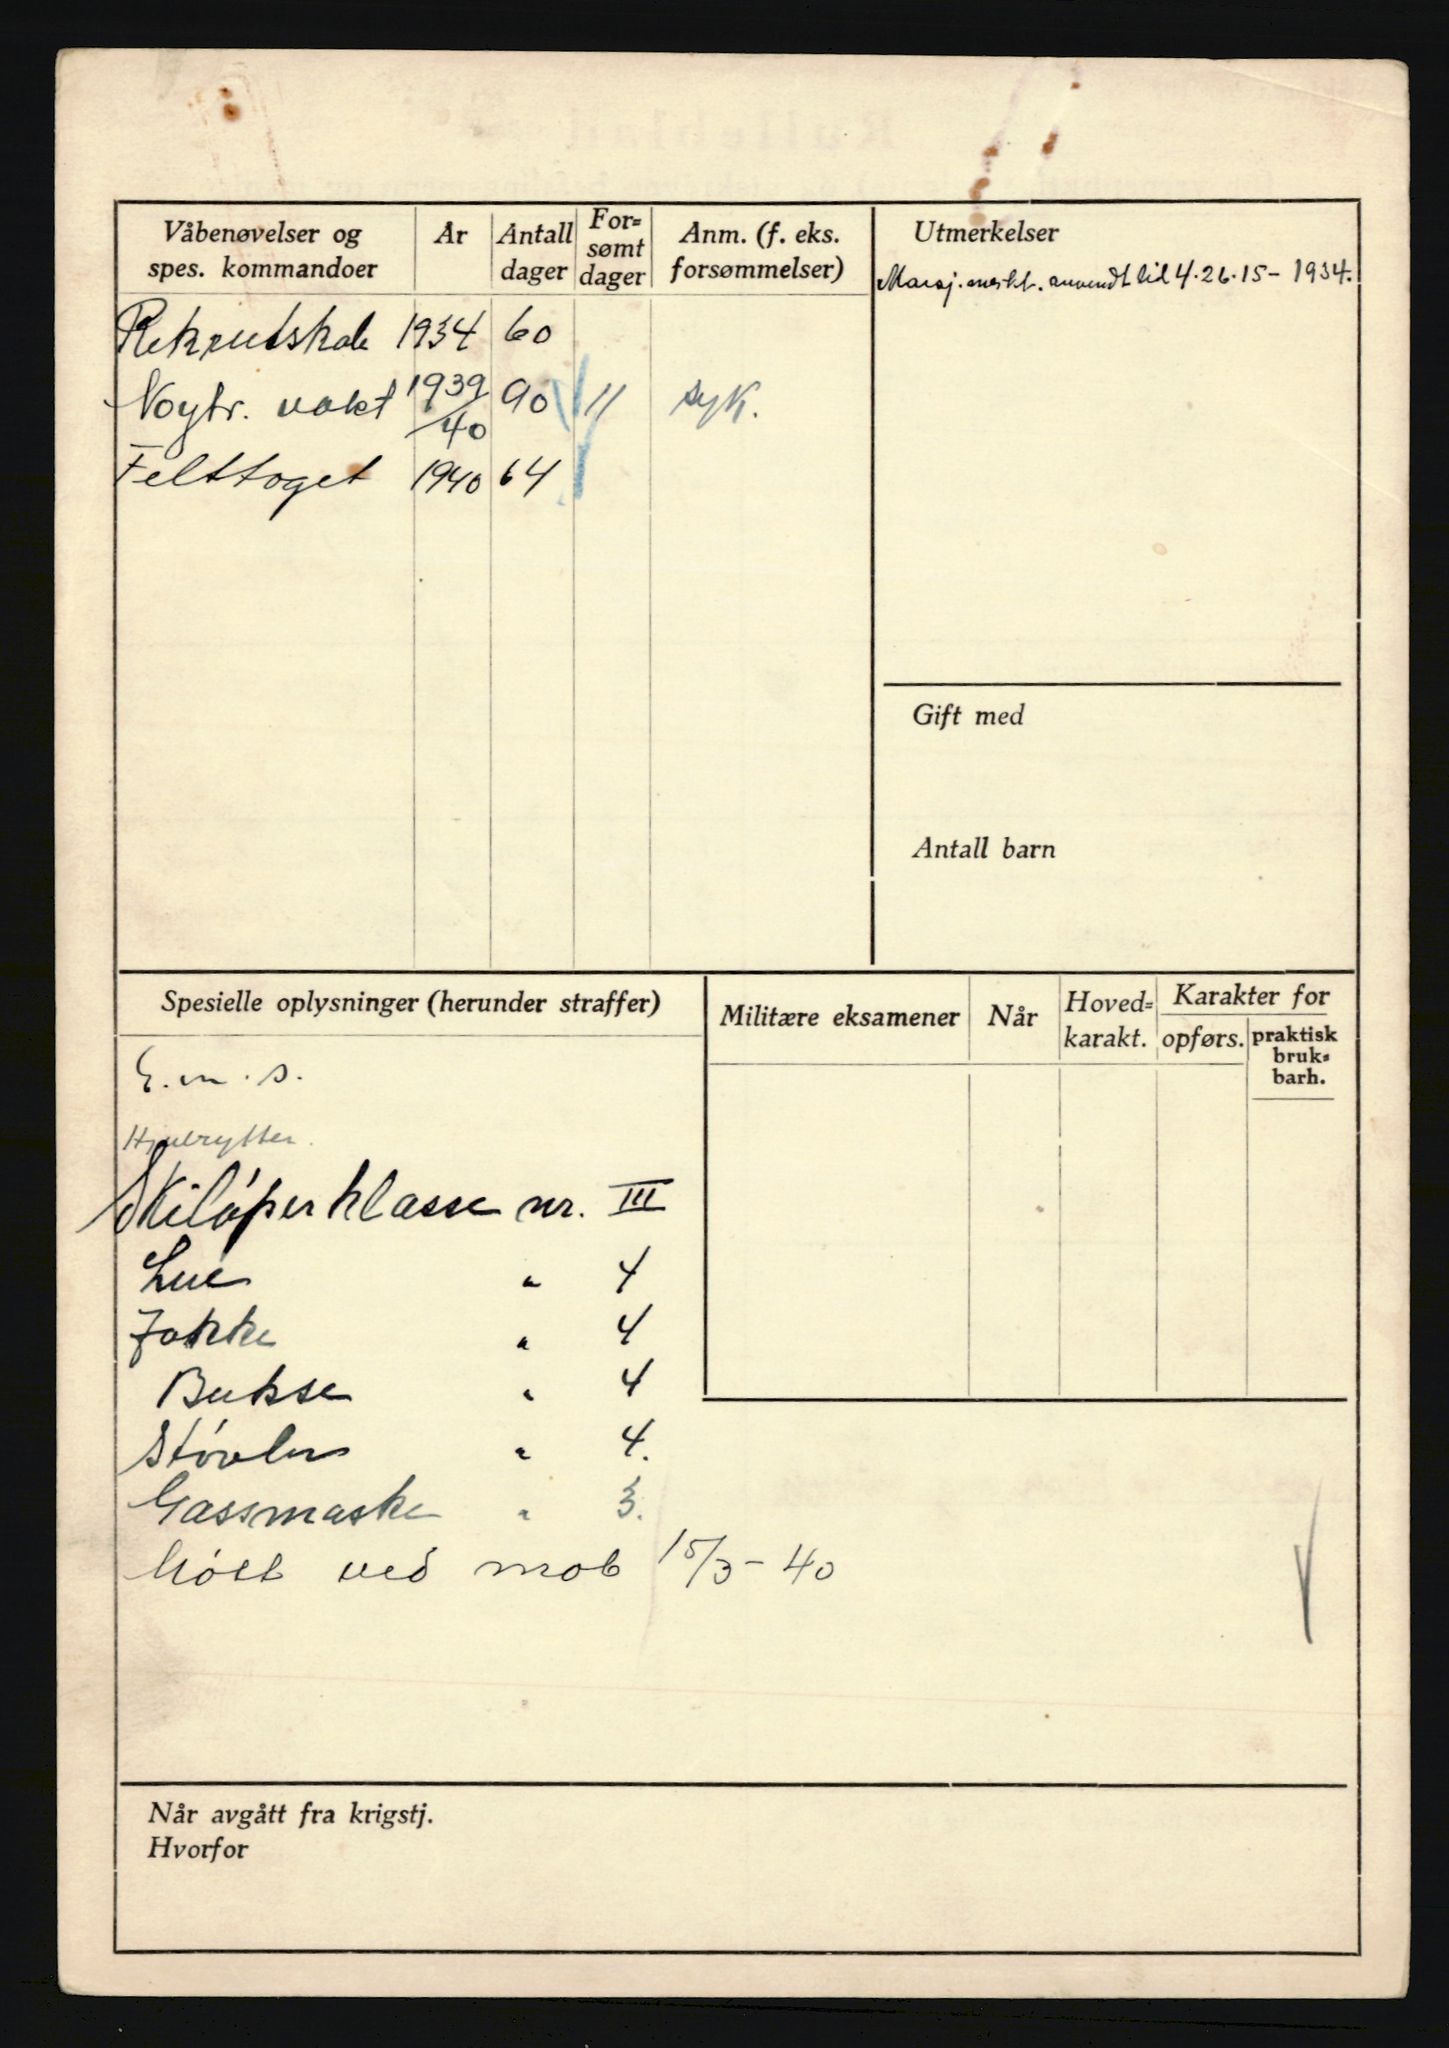 Våbenøvelser og
spes. kommandoer
Ar
Antall
dager
For=
sømt
dager
Anm. (f. eks.
forsømmelser)
Utmerkelser
Marsj.merkt. anvendt tid 4.26.15 - 1934.
Rekrutskole 1934 60
Nøytr. vakt 1939/40 90 11 syk.
Felttoget 1940 64
Gift med
Antall barn
Spesielle oplysninger (herunder straffer)
Militære eksamener
Når
Hoved=
karakt.
Karakter for
opførs.
praktisk
bruk=
barh.
E.m.s.
Hjulrytter.
Skiløperklasse nr. III
Lue " 4
Jakke " 4
Bukse " 4
Støvler " 4.
Gassmaske " 3.
Møtt ved mob 15/3-40
Når avgått fra krigstj.
Hvorfor